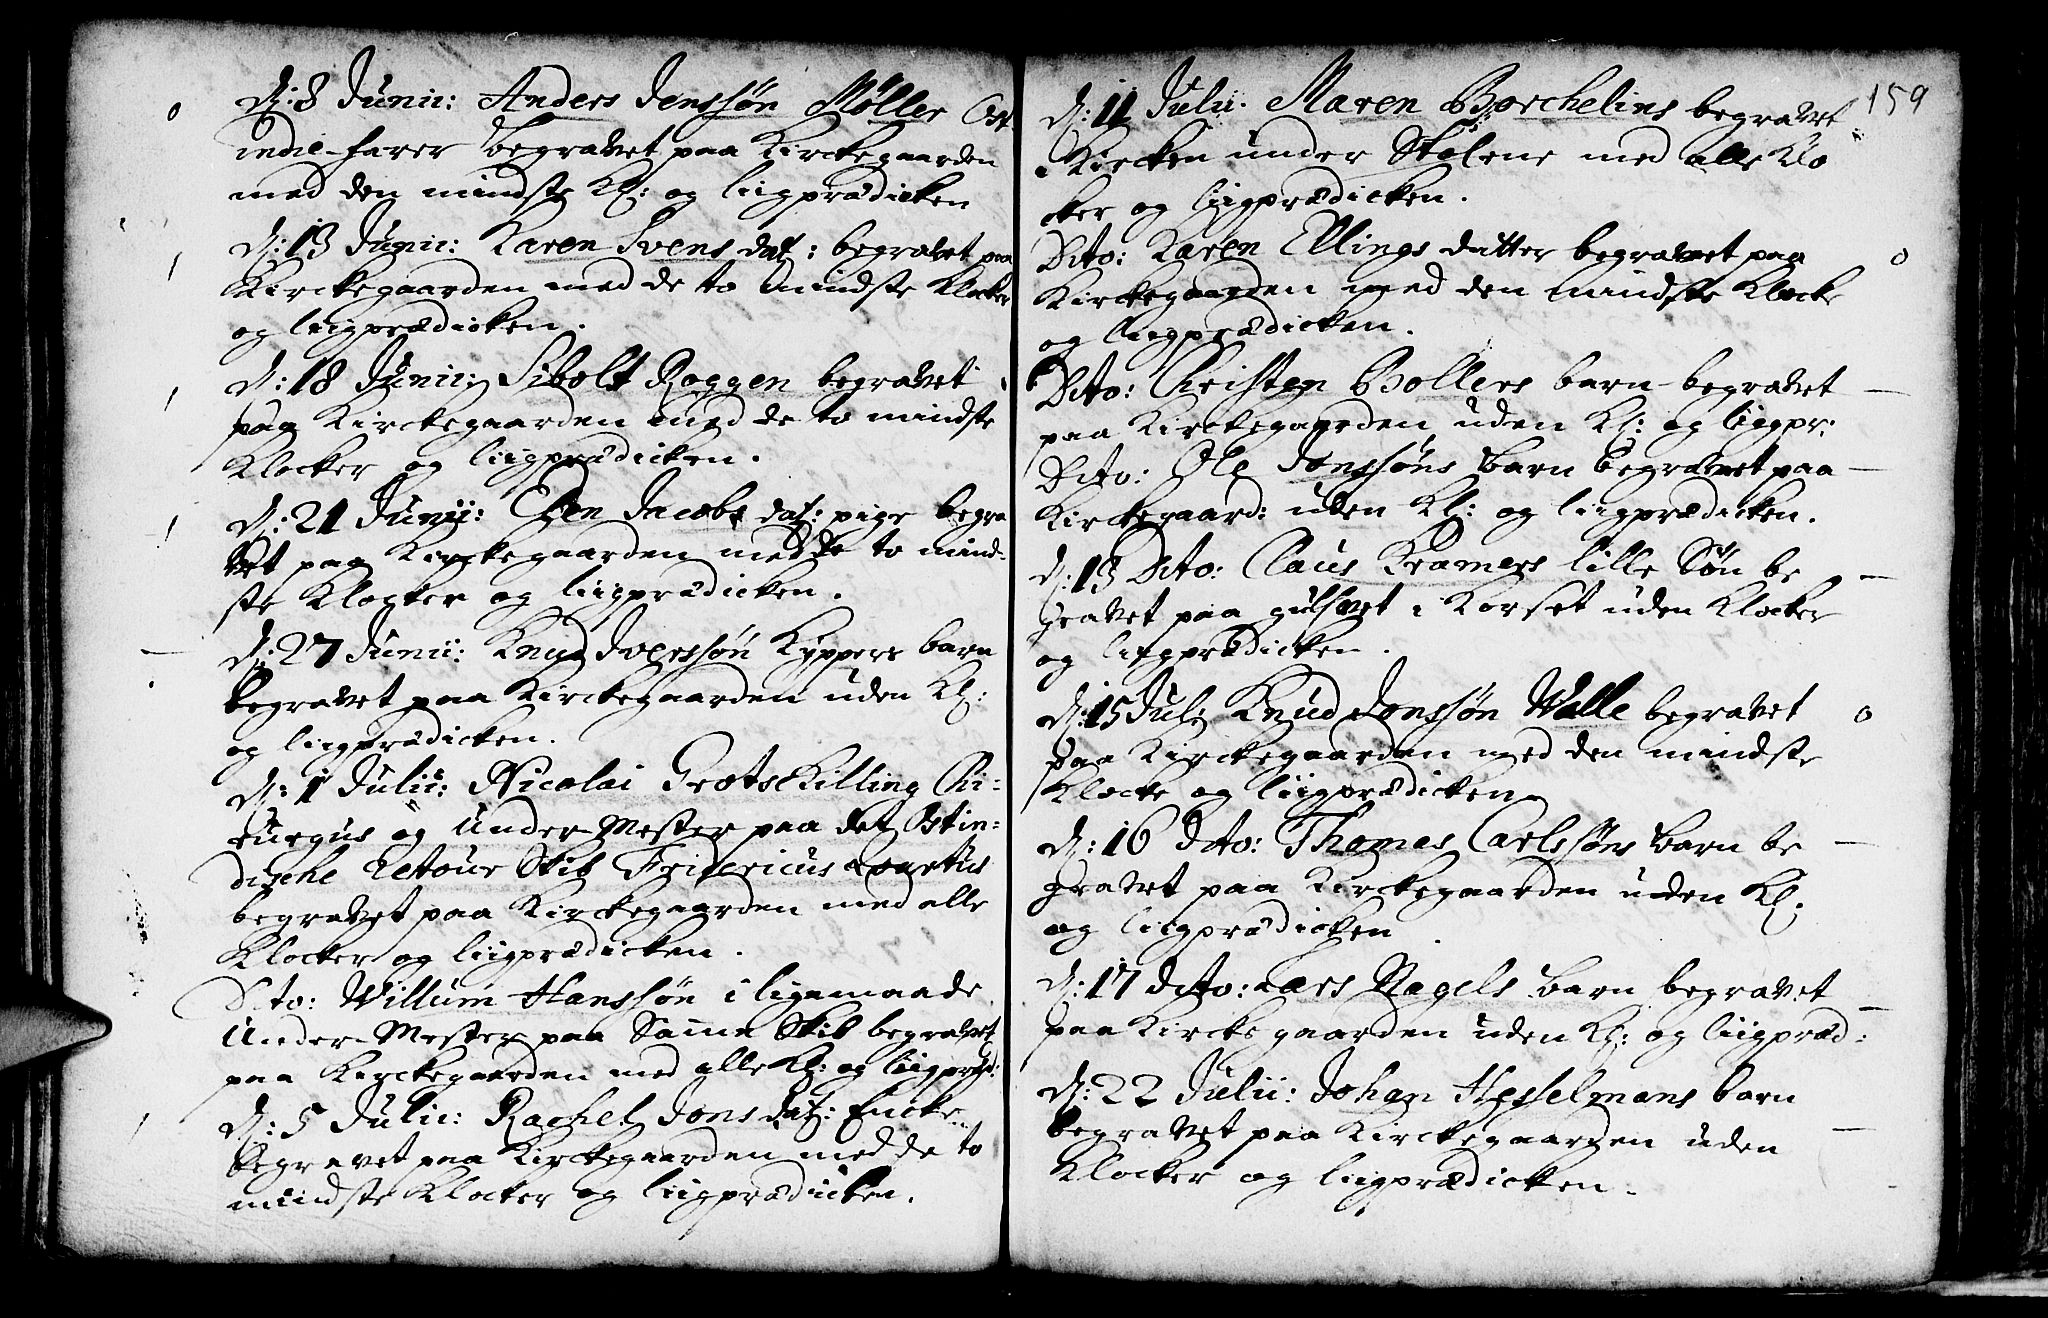 d: 8 Junii: Anders Jenssøn Møller Ost-
indie-farer begravet paa Kirckegaarden
med den mindste Kl: og liigprædicken
d: 13 Junii: Karen Svens dat: begravet paa
Kirckegaarden med de to mindste Klocker
og liigprædicken.
d: 18 Junii: Sibolt Roggen begravet
paa Kirckegaarden med de to mindste
Klocker og liigprædicken.
d: 21 Junii: Ellen Jacobs dat: pige begra
vet paa Kirckegaarden med de to mind-
ste Klocker og liigprædicken.
d: 27 Junii: Knud Iverssøn Kyppers barn
begravet paa Kirckegaarden uden Kl:
og liigprædicken.
d: 1 Julii: Nicolai Grotschilling Chi-
rurgus og Under-Mester paa det Ostin-
dische Retour Skib Fridericus qvartus
begravet paa Kirckegaarden med alle
Klocker og liigprædicken.
Dito: Willum Hanssøn i ligemaade
Under-Mester paa Samme Skib begravet
paa Kirckegaarden med alle Kl: og liigpræd:
d: 5 Julii: Rachel Jons dat: Encke
begravet paa Kirckegaarden med de to
mindste Klocker og liigprædicken.
159
d: 11 Julii. Maren Borchelins begravet
i Kircken under Stolene med alle Klo
cker og liigprædicken.
Dito: Karen Ellings datter begravet paa
Kirckegaarden med den mindste Klocke
og liigprædicken.
Dito: Christen Bollers barn begravet
paa Kirckegaarden uden Kl: og liigpr:
Dito: Ole Jonssøns barn begravet paa
Kirckegaard: uden Kl: og liigprædicken.
d: 13 Dito: Claus Kramers lille Søn be
gravet paa gulfvet i Korset uden Klocker
og liigprædicken.
d: 15 Juli Knud Jonssøn Walle begravet
paa Kirckegaarden med den mindste
Klocke og liigprædicken
d: 16 Dito: Thomas Carlssøns barn be
gravet paa Kirckegaarden uden Kl:
og liigprædicken
d: 17 Dito: Lars Nagels barn begravet
paa Kirckegaarden uden Kl: og liigpræd:
d: 22 Julii: Johan Hesselmans barn
begravet paa Kirckegaarden uden
Klocker og liigprædicken.